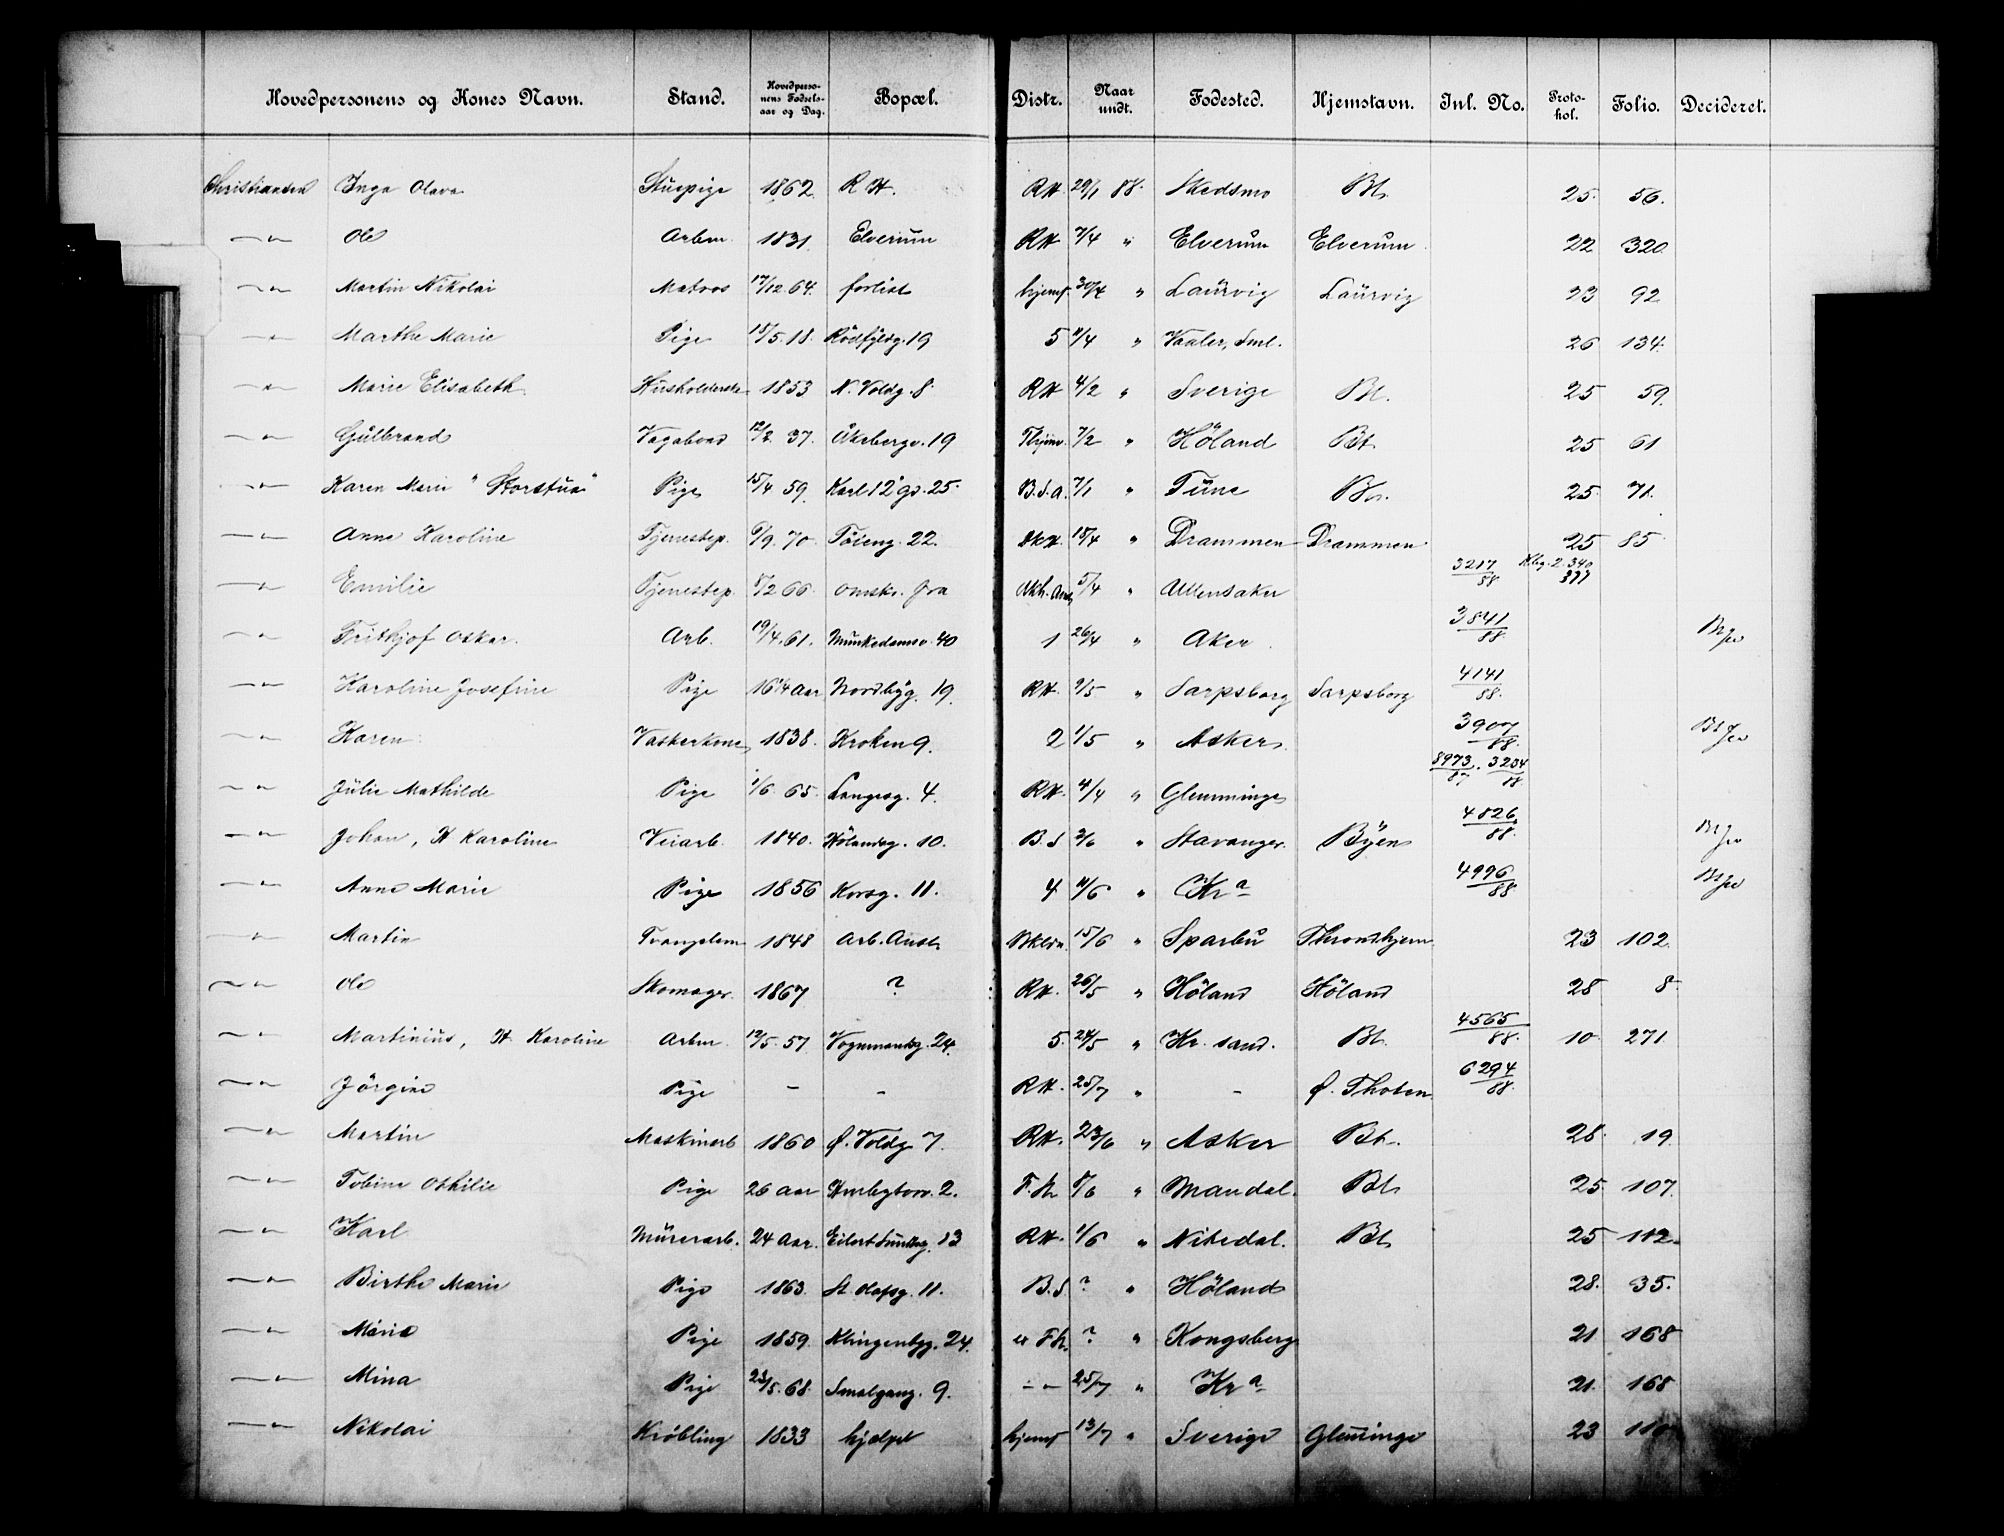 Hovedpersonens og Kones Navn. Stand. Hovedpersonens Fødsels-aar og Dag. Bopæl. Distr. Naar undt. Fødested. Hjemstavn. Inl. No. Protokol. Folio. Decideret.
Christiansen Inga Olava Stuepige 1862 R H. RH. 29/1 88. Skedsmo Bt. 25. 56.
—"— Ole Arbm. 1831. Elverum RH 7/4 " Elverum Elverum 22 320
—"— Martin Nikolai Matros 17/12 64. forlist hjemf. 30/4 " Laurvig Laurvig 23 92
—"— Marthe Marie Pige 15/5. 18. Rödfyldg. 19 5 11/4 " Vaaler, Sml. 26 134.
—"— Marie Elisabeth Husholderske 1853 N. Voldg. 8. RH 4/2 " Sverige Bt. 25 59.
—"— Gulbrand Vagabond 12/2 37. Åkebergv. 19 Thjem. 7/2 " Höland Bt 25 61
—"— Karen Marie "Storstua" Pige 15/4 59. Karl 12 gd. 25. B.S.A. 7/1 " Tune Bt. 25. 71.
—"— Anne Karoline Tjenestep. 6/9. 70. Töieng. 22. 18/4 " Drammen Drammen 25 85
—"— Emilie Tjenestep. 8/2 66 omstr. fra 5/4 " Ullensaker 3217/88 Kbg. 2. 340 377
—"— Frithjof Oskar. Arb. 19/4. 61. Munkedamsv. 40 1 26/4 " Aker 3841/88.
—"— Karoline Josefine Pige 16 1/4 Aar Nordbyg. 19. RH. 9/5 " Sarpsborg Sarpsborg 4141/88.
—"— Karen Vaskekone 1838. Kroken 9. 2 1/5 " Asker 3907/88.
—"— Julie Mathilde Pige 1/6. 65. Langesg. 4. RH. 4/4 " Glemminge 8973/87. 3204/88
—"— Johan, H Karoline Veiarb. 1840. Hölandsg. 10. B.S 2/6 " Stavanger. Byen 4826/88.
—"— Anne Marie Pige 1856 Korsg. 11. 4 11/6 " Kra 4996/88
—"— Martin Tvangslem 1848 Arb. Anst. 15/6 " Sparbu Throndhjem 23 102.
—"— Ole Skomager. 1867 ? RH. 26/5 " Höland Höland 28 8.
—"— Martinius, H. Karoline Arbm 12/5. 57. Vognmandsg. 24. 5. 24/5 " Kr. sand. Bt. 4565/88. 10. 271.
—"— Jörgine Pige — - RH. 25/7 " - Ø. Thoten 6294/88.
—"— Martin Maskinarb 1860 Ø. Voldg 7. RH. 23/6 " Asker Bt. 28. 19.
—"— Tobine Othilie Pige 26 Aar 2. F.h 8/6 " Mandal. Bt 25. 107.
—"— Karl Murerarb. 24 Aar. Eilert Sundtsg. 13 RH. 1/6 " Nitedal. Bt 25 112.
—"— Birthe Marie Pige 1863. St. Olafsg. 11. B.S. ? " Höland 28. 35.
—"— Marie Pige 1859. Klingenbgg. 24. F.h. ? " Kongsberg 21 168
—"— Mina Pige 23/5. 68. Smalgang. 9. —"— 25/7 " Kra 21. 168
—"— Nikolai Kröbling 1833 hjælpt hjemf 13/7 " Sverige Glemminge 23 110